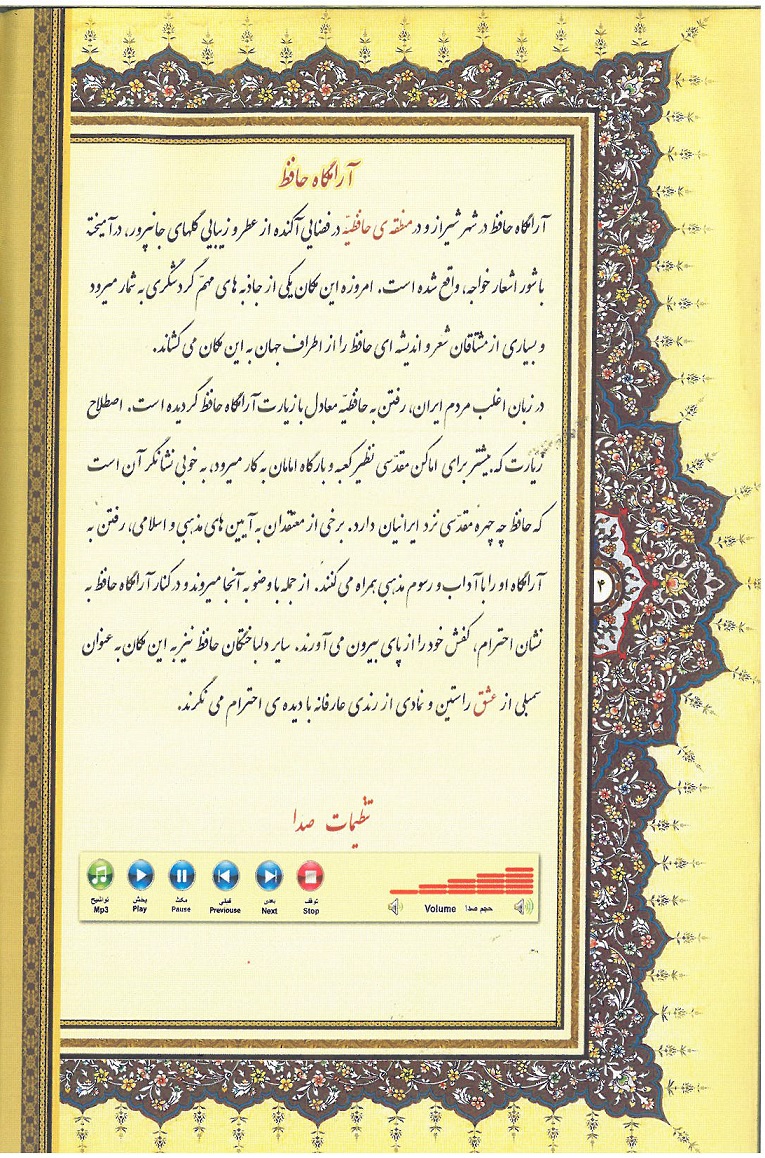 آرامگاه حافظ
آرامگاه حافظ در شهر شیراز و در منطقه ی حافظیّه در فضایی آکنده از عطر و زیبایی گلهای جانپرور، درآمیخته
با شور اشعار خواجه، واقع شده است. امروزه این مکان یکی از جاذبه های مهمّ گردشگری به شمار میرود
و بسیاری از مشتاقان شعر و اندیشه ای حافظ را از اطراف جهان به این مکان می کشاند.
در زبان اغلب مردم ایران، رفتن به حافظیّه معادل با زیارت آرامگاه حافظ گردیده است. اصطلاح
زیارت که بیشتر برای اماکن مقدّسی نظیر کعبه و بارگاه امامان به کار میرود، به خوبی نشانگر آن است
که حافظ چه چهره مقدّسی نزد ایرانیان دارد. برخی از معتقدان به آیین های مذهبی و اسلامی، رفتن به
آرامگاه او را با آداب و رسوم مذهبی همراه می کنند. از جمله با وضو به آنجا میروند و در کنار آرامگاه حافظ به
نشان احترام، کفش خود را از پای بیرون می آورند. سایر دلباختگان حافظ نیز به این مکان به عنوان
سمبلی از عشق راستین و نمادی از رندی عارفانه با دیده ی احترام می نگرند.
۴
تنظیمات صدا
تواشیح پخش مکث قبلی بعدی توقف
Mp3 Play Pause Previouse Next Stop
Volume حجم صدا